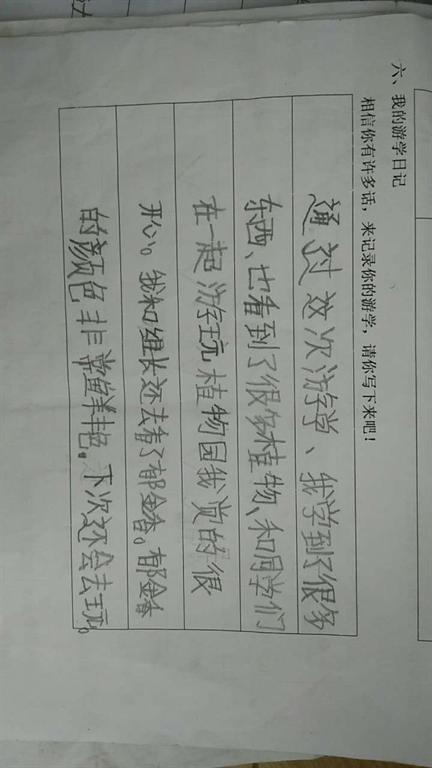 六、我的游学日记
相信你有许多话，来记录你的游学，请你写下来吧！
通过这次游学、我学到了很多
东西、也看到了很多植物、和同学们
在一起游玩植物园我觉的很
开心。我和组长还去看了郁金香。郁金香
的颜色非常鲜艳。下次还会去玩。